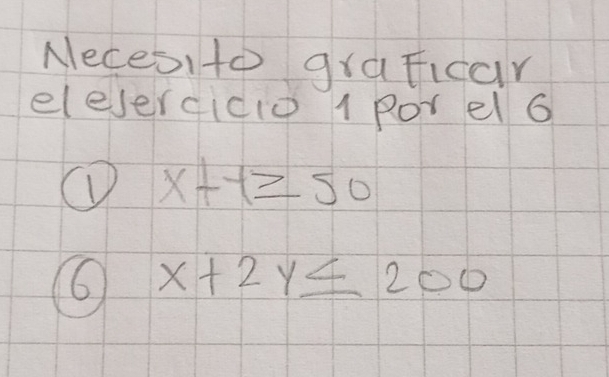 Necesito graficar
el ejercicio 1 por el 6
① x+y≥50
⑥ x+2y≤200